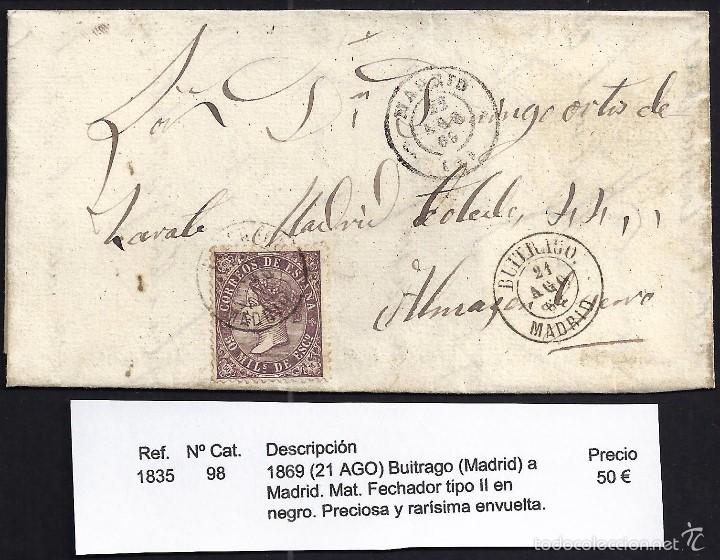 Sor Dn Domingo Ortiz de
Zarate Madrid Toledo, 44,,
Almacen Cuero
MADRID
22
AGO
69
BUITRAGO.
21
AGO
69
MADRID
CORREOS DE ESPAÑA
50 MILS DE ESCO
Ref. Nº Cat. Descripción Precio
1835 98 1869 (21 AGO) Buitrago (Madrid) a 50 €
Madrid. Mat. Fechador tipo II en
negro. Preciosa y rarísima envuelta.
© todocoleccion.net